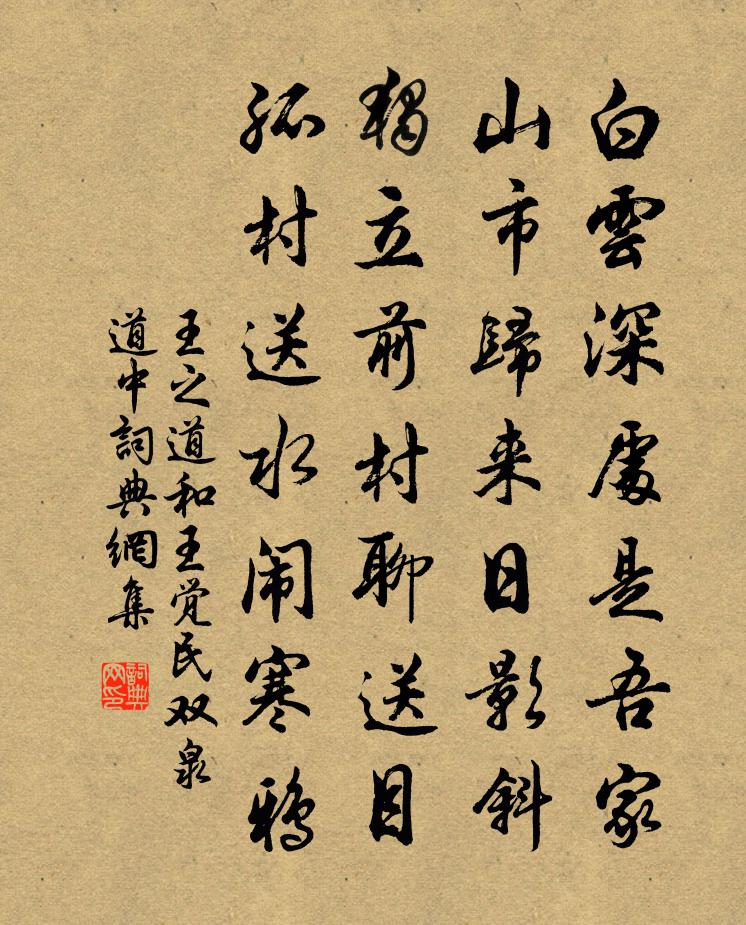 白雲深處是吾家
山市歸来日影斜
獨立前村聊送目
孤村送水闹寒鴉
王之道和王觉民双泉
道中詞典網集
詞典网印